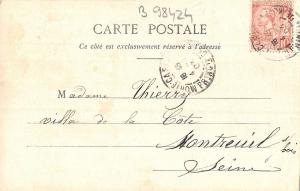 B 98424
CARTE POSTALE
Ce côté est exclusivement réservé à l'adresse
Madame Thierry
villa de la Côte
Montreuil s/ bois
Seine